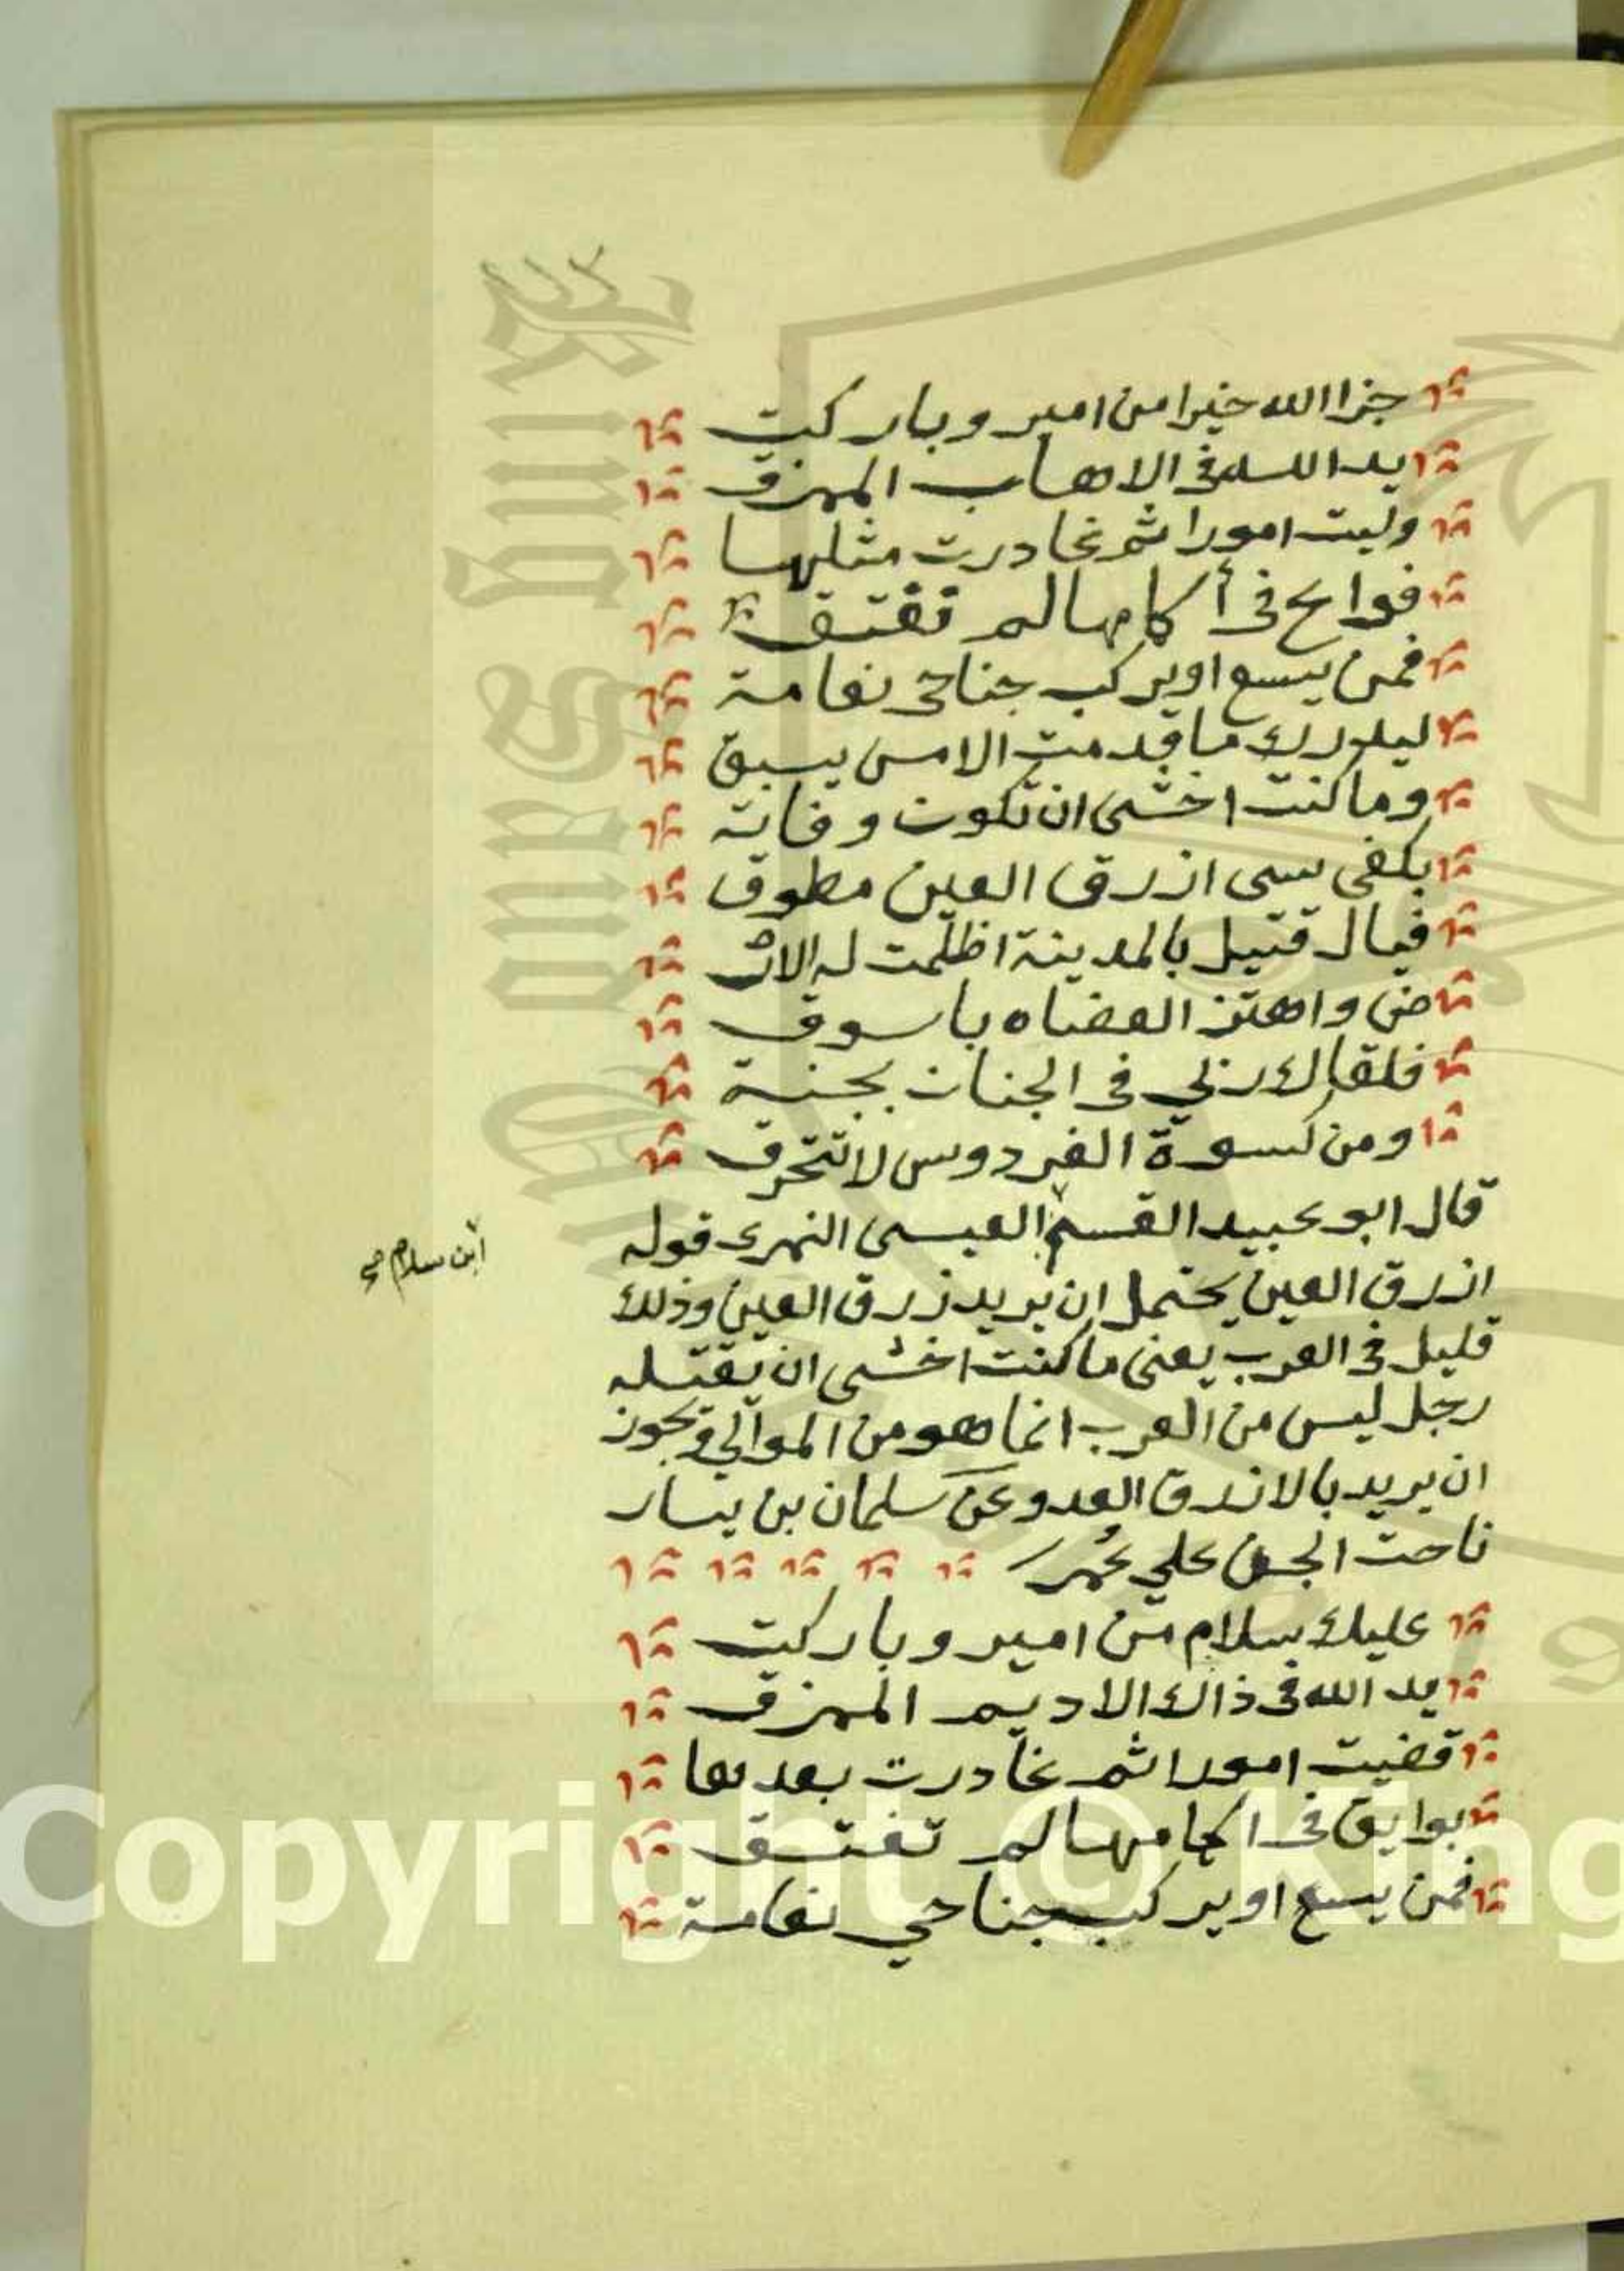 جزا الله خيرا من امير وباركت
يد الله فى الاهاب الممزق
وليت امورا ثم غادرت مثلها
فوايح فى أكامها لم تفتق
فمن يسع او يركب جناحى نعامة
ليدرك ما قدمت الامس يسبق
وما كنت اخشى ان تكون وفاته
بكفى سبى ازرق العين مطوق
فيال قتيل بالمدينة اظلمت له الار
ض واهتز العضاه باسوق
فلقاك ربي فى الجنان بجنية
ومن كسوة الفردوس لا تتحرق
قال ابو عبيد القسم العيسى النهرى قوله
ابن سلام صح
ازرق العين يحتمل ان يريد زرق العين وذلك
قليل فى العرب يعنى ما كنت اخشى ان يقتله
رجل ليس من العرب انما هو من الموالي ويجوز
ان يريد بالازرق العدو وعن سلمان بن يسار
ناحت الجن علي عمر
عليك سلام من امير وباركت
يد الله فى ذاك الاديم الممزق
قضيت امورا ثم غادرت بعدها
بوايق فى اكمامها لم تفتق
فمن يسع او يركب جناحي نعامة
Copyright © King